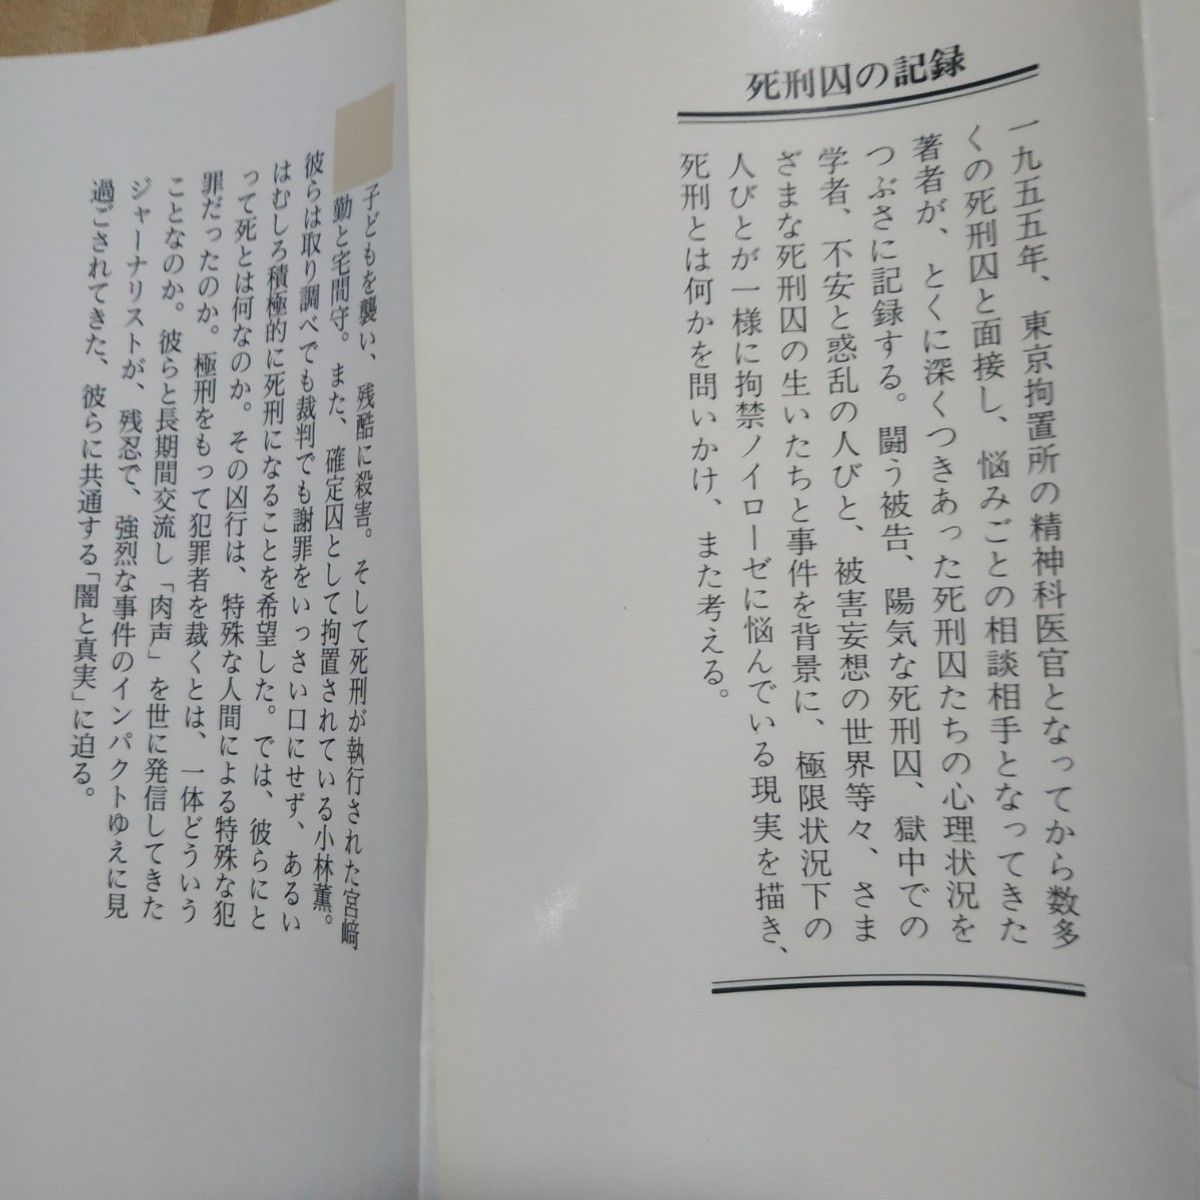 死刑囚の記録
一九五五年、東京拘置所の精神科医官となってから数多
くの死刑囚と面接し、悩みごとの相談相手となってきた
著者が、とくに深くつきあった死刑囚たちの心理状況を
つぶさに記録する。闘う被告、陽気な死刑囚、獄中での
学者、不安と惑乱の人びと、被害妄想の世界等々、さま
ざまな死刑囚の生いたちと事件を背景に、極限状況下の
人びとが一様に拘禁ノイローゼに悩んでいる現実を描き、
死刑とは何かを問いかけ、また考える。
子どもを襲い、残酷に殺害。そして死刑が執行された宮﨑
勤と宅間守。また、確定囚として拘置されている小林薫。
彼らは取り調べでも裁判でも謝罪をいっさい口にせず、あるい
はむしろ積極的に死刑になることを希望した。では、彼らにと
って死とは何なのか。その凶行は、特殊な人間による特殊な犯
罪だったのか。極刑をもって犯罪者を裁くとは、一体どういう
ことなのか。彼らと長期間交流し「肉声」を世に発信してきた
ジャーナリストが、残忍で、強烈な事件のインパクトゆえに見
過ごされてきた、彼らに共通する「闇と真実」に迫る。